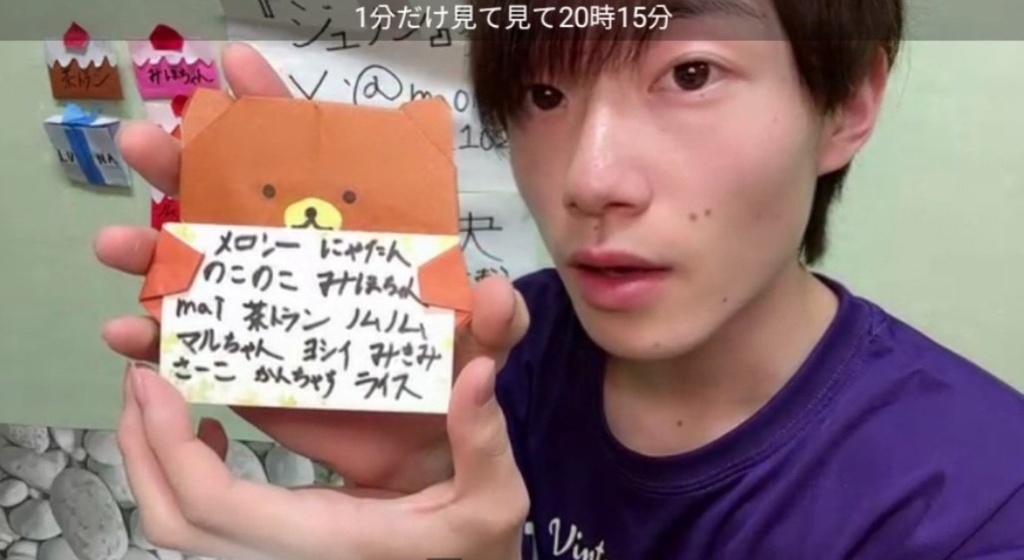 1分だけ見て見て20時15分
茶トラン
みほちゃん
メロシー にゃたん
のこのこ みほちゃん
maI 茶トラン ノムノム
マルちゃん ヨシイ みきみ
さーこ かんちゃす ライス
Vint